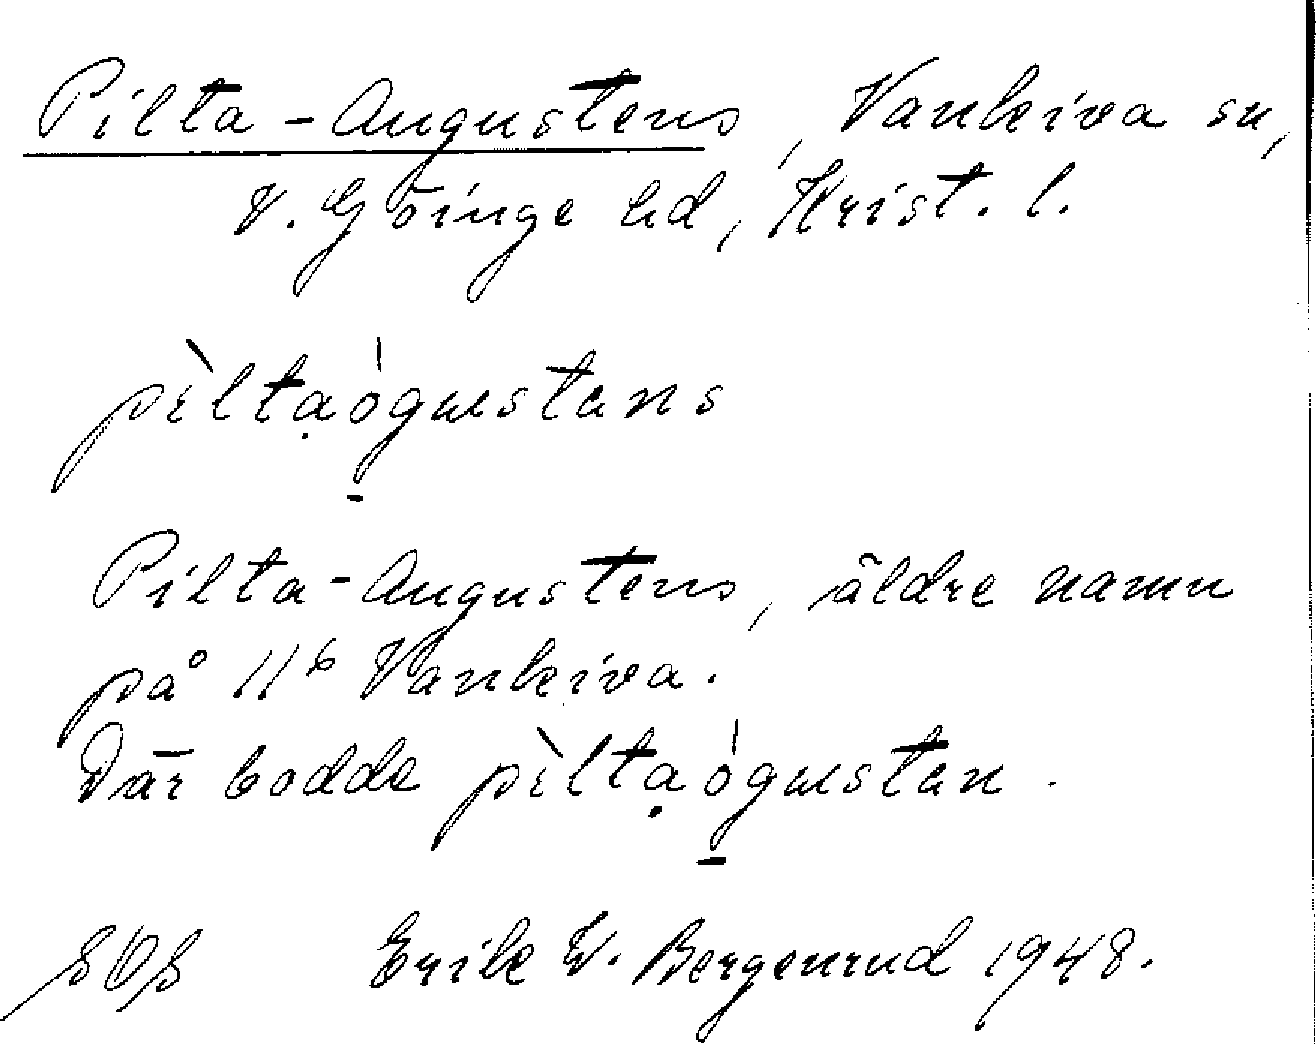 Pilta-Augustens, Vankiva sn,
V. Göinge hd, Krist. l.
pìltạógustens
Pilta-Augustens, äldre namn
på 11⁶ Vankiva.
Där bodde pìltạógusten.
Erik W. Bergenrud 1948.